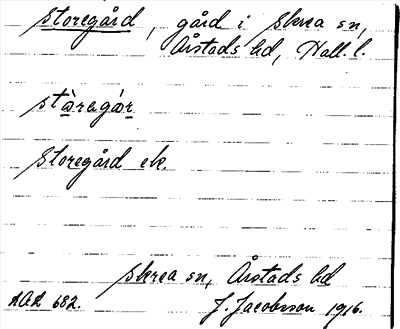 Storegård, gård i Skrea sn,
Årstads hd, Hall. l.
stàregá̀r
Storegård ek.
Skrea sn, Årstads hd
AOA 682. J. Jacobsson 1916.